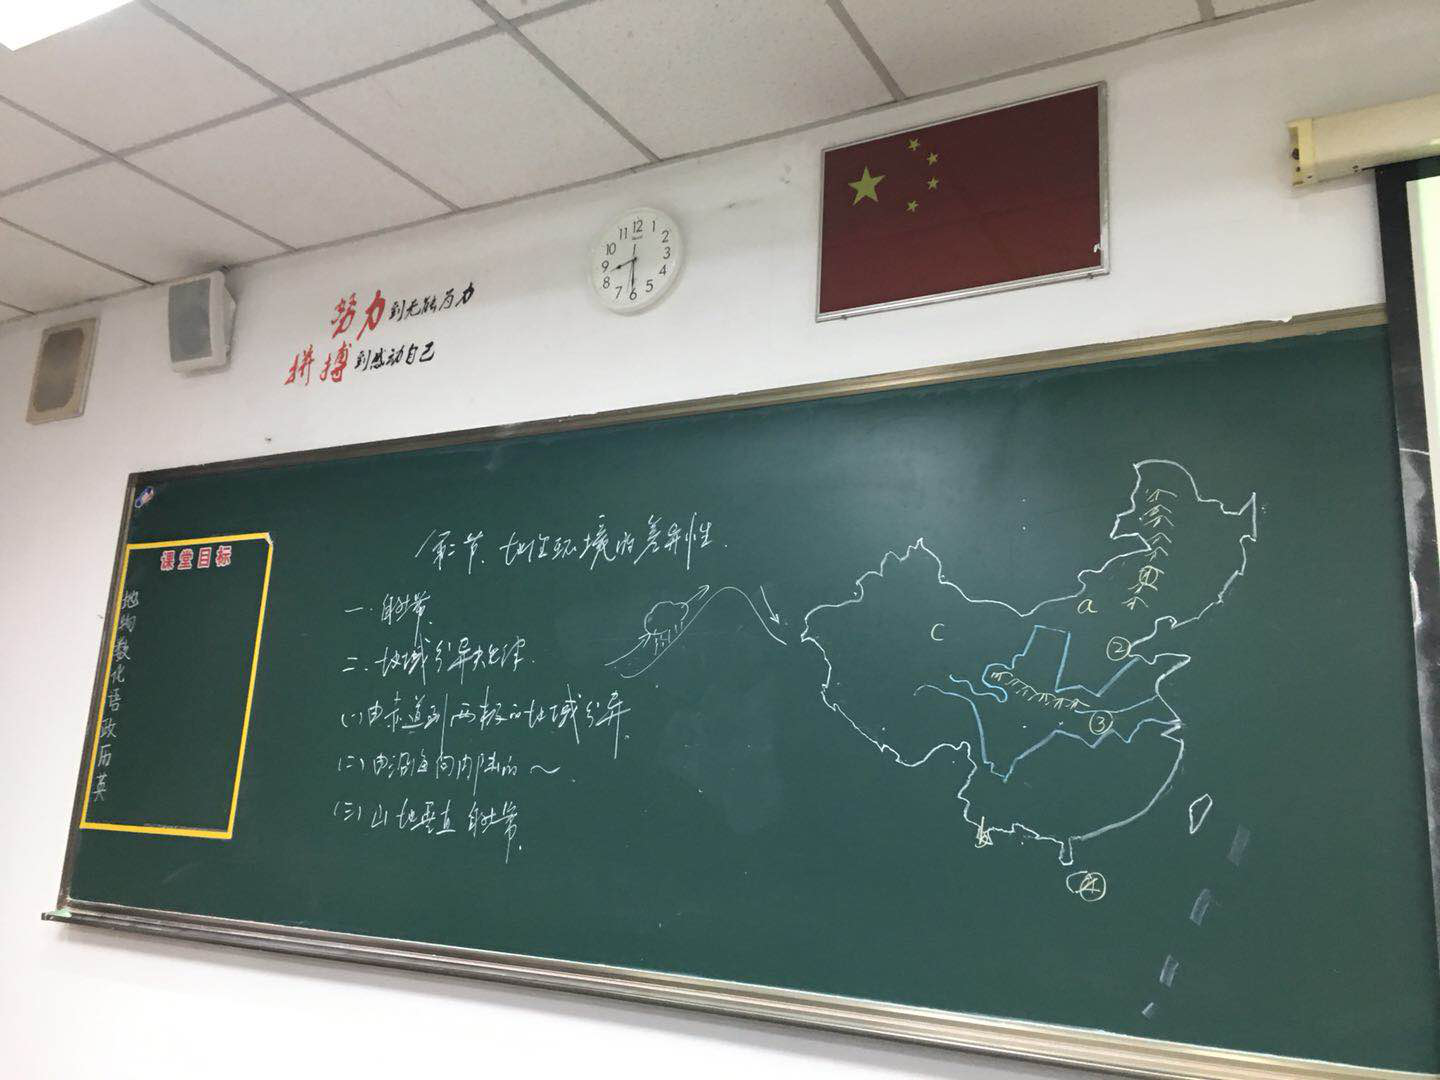 努力到无能为力
拼搏到感动自己
12 1 2 3 4 5 6 7 8 9 10 11
课堂目标
地
物
数
化
语
政
历
英
第二节、地理环境的差异性.
一.自然带.
二.地域分异规律.
(一)由赤道到两极的地域分异.
(二)由沿海向内陆的~.
(三)山地垂直自然带.
C
a
②
③